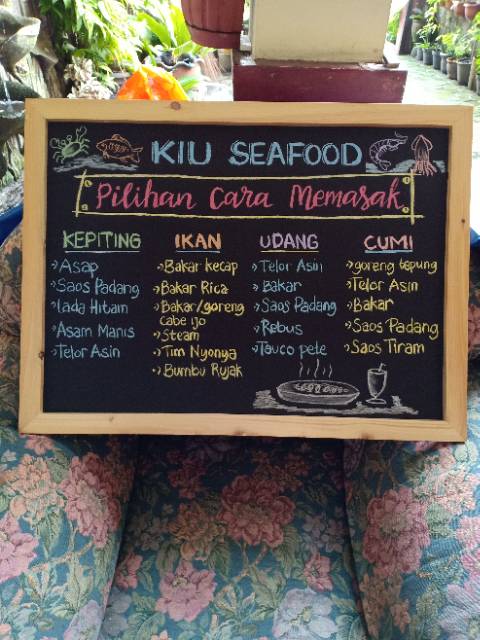 KIU SEAFOOD
Pilihan Cara Memasak
KEPITING
Asap
Saos Padang
lada Hitam
Asam Manis
Telor Asin
IKAN
Bakar kecap
Bakar Rica
Bakar/goreng
Cabe ijo
Steam
Tim Nyonya
Bumbu Rujak
UDANG
Telor Asin
Bakar
Saos Padang
Rebus
Tauco pete
CUMI
goreng tepung
Telor Asin
Bakar
Saos Padang
Saos Tiram